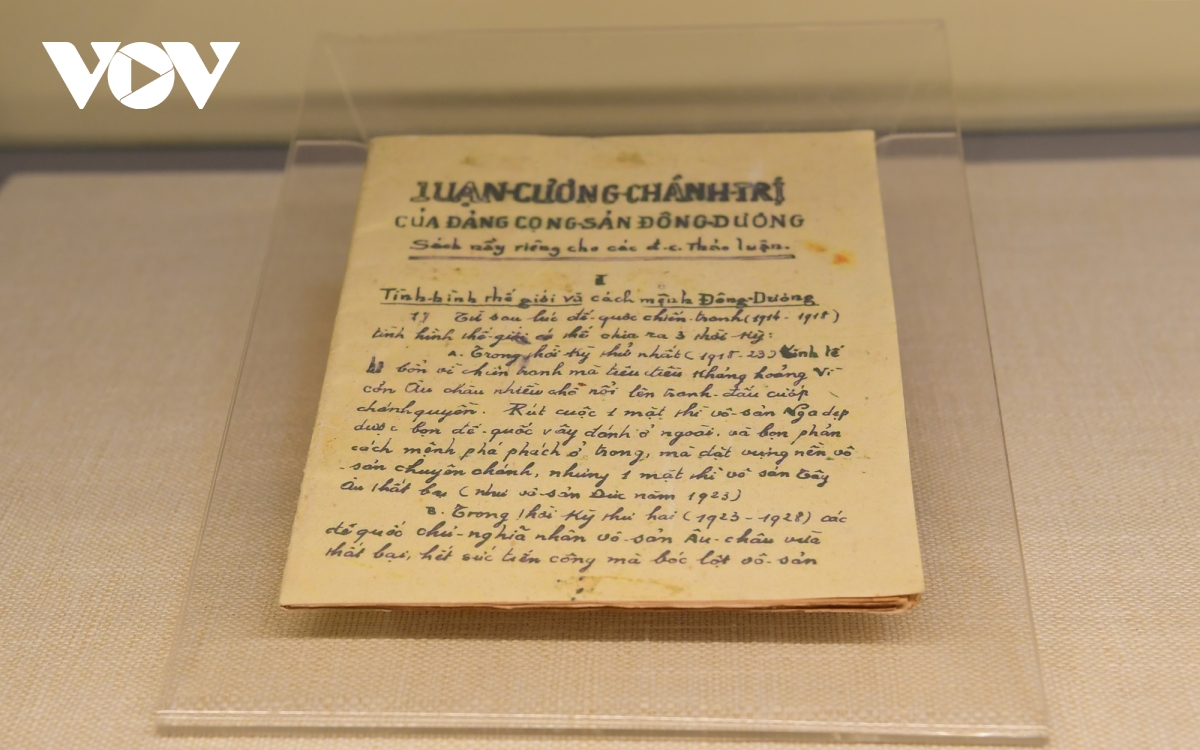 VOV
LUẬN-CƯƠNG-CHÁNH-TRỊ
CỦA ĐẢNG CỌNG-SẢN ĐÔNG-DƯƠNG
Sách nầy riêng cho các đ.c. Thảo luận.
I
Tình-hình thế giới và cách mệnh Đông-Dương
1) Từ sau lúc đế-quốc chiến-tranh (1914-1918)
tình hình thế-giới có thể chia ra 3 thời kỳ:
A. Trong thời kỳ thứ nhất (1918-23) kinh tế
bổn vì chiến tranh mà tiêu điều khủng hoảng Vì
cổn Âu châu nhiều chỗ nổi lên tranh-đấu cướp
chánh quyền. Rút cuộc 1 mặt thì vô-sản Nga dẹp
được bọn đế-quốc vây đánh ở ngoài, và bọn phản
cách mệnh phá phách ở trong, mà đặt vựng nền vô
-sản chuyên chánh, nhưng 1 mặt thì vô sản tây
Âu thất bại (như vô-sản Đức năm 1923)
B. Trong thời kỳ thứ hai (1923-1928) các
đế quốc chủ-nghĩa nhân vô-sản Âu-châu vừa
thất bại, hết sức tiến công mà bóc lột vô-sản